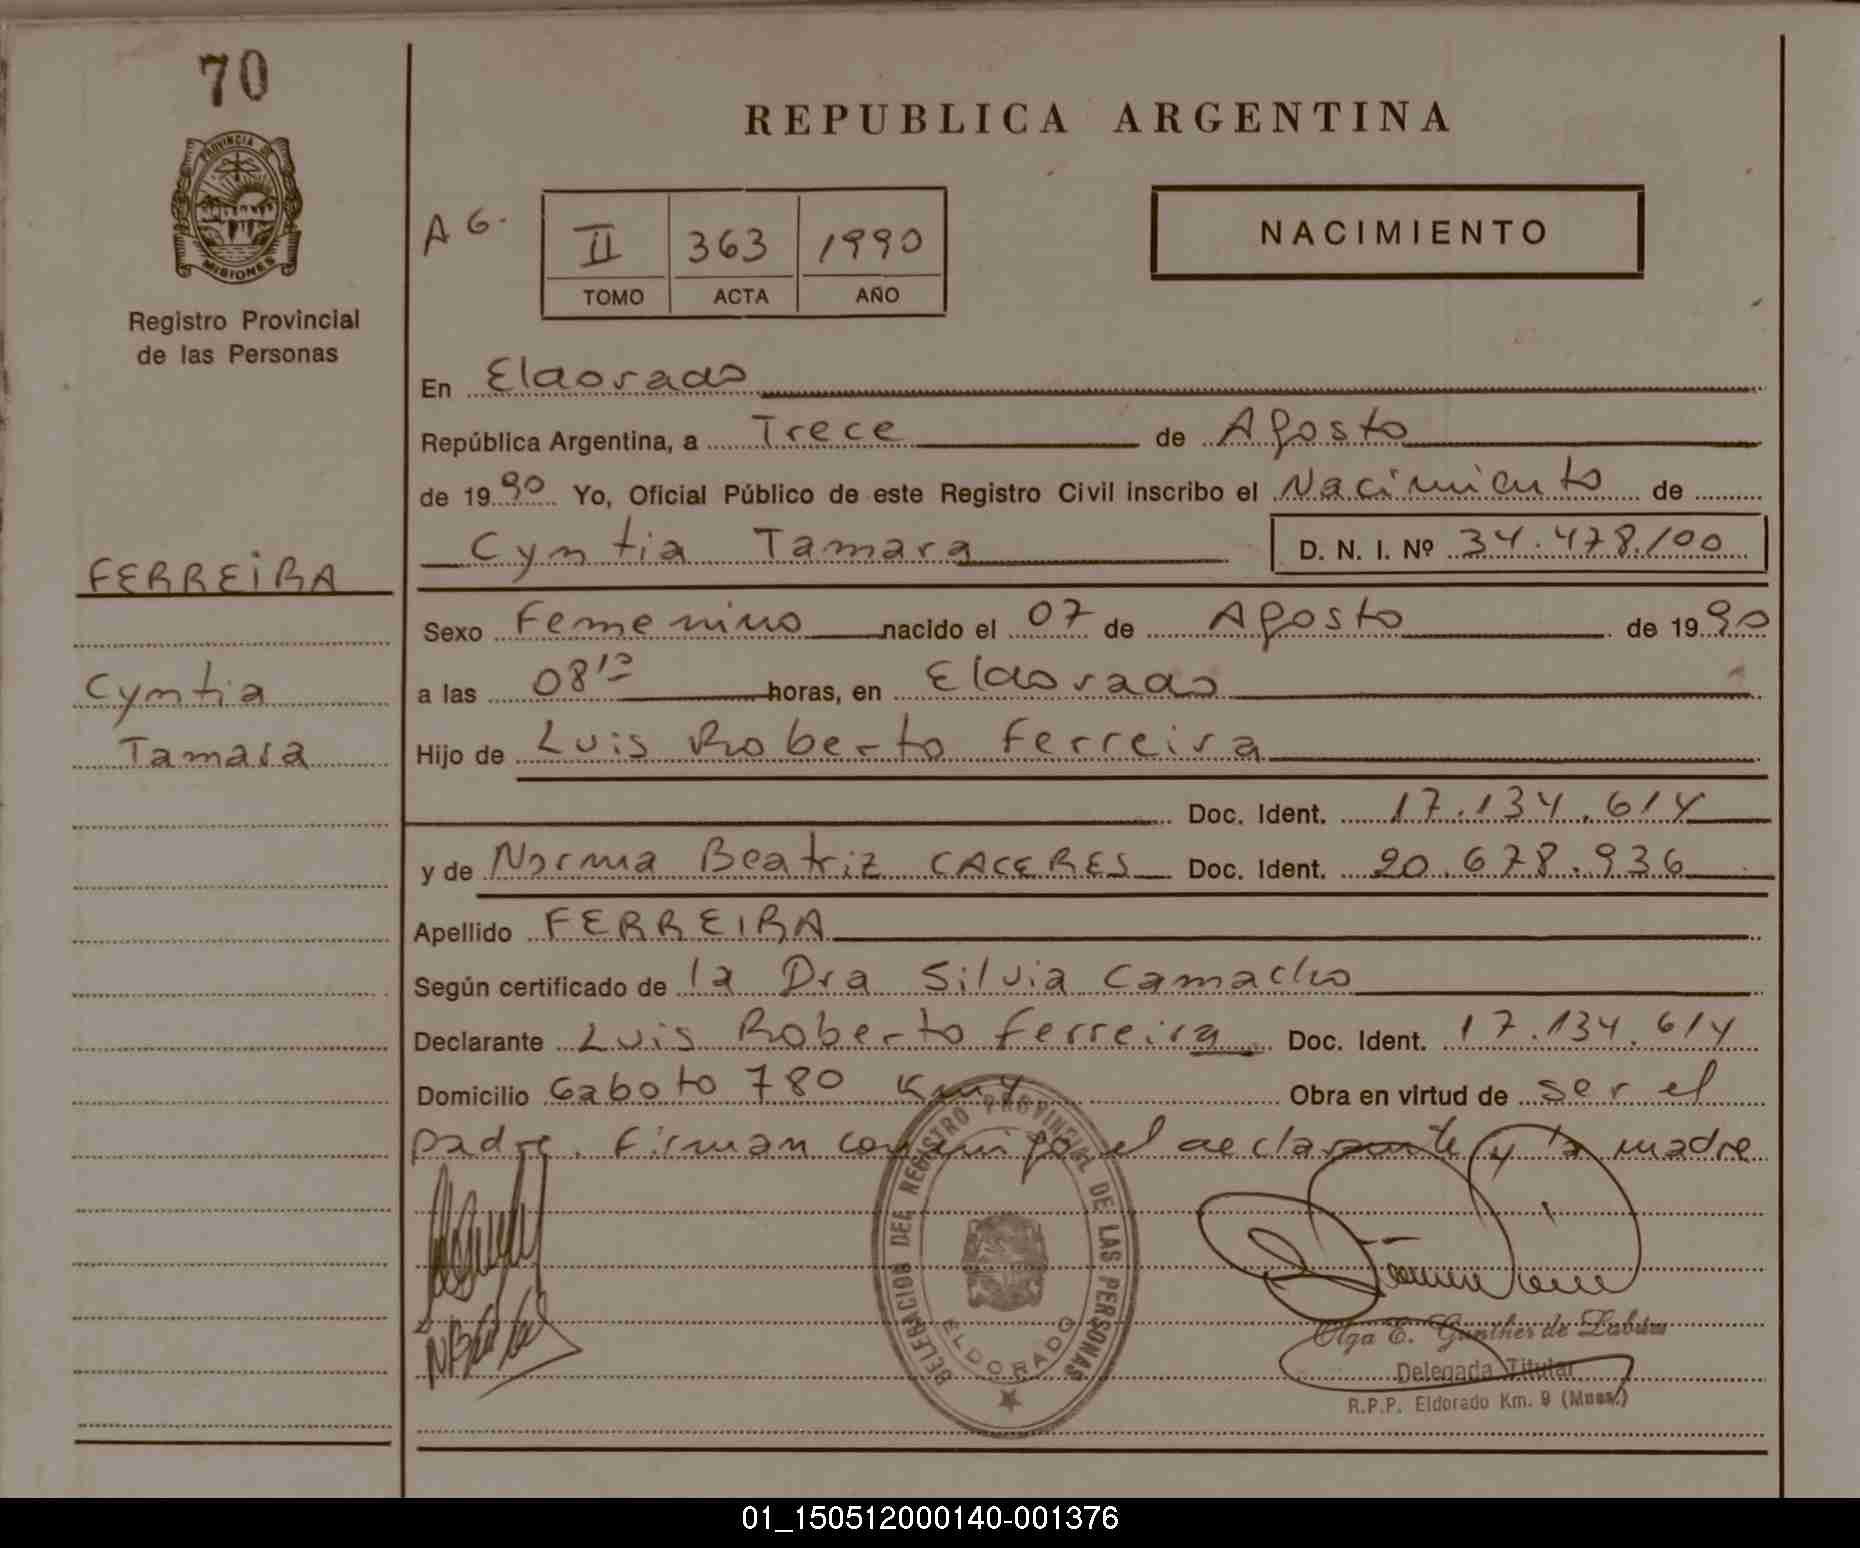 70
PROVINCIA DE
MISIONES
Registro Provincial
de las Personas
REPUBLICA ARGENTINA
A G.
II 363 1990
TOMO ACTA AÑO
NACIMIENTO
En Eldorado
República Argentina, a Trece de Agosto
de 1990 Yo, Oficial Público de este Registro Civil inscribo el Nacimiento de
Cyntia Tamara D. N. I. Nº 34.478.100
FERREIRA
Sexo Femenino nacido el 07 de Agosto de 1990
Cyntia
a las 08 10 horas, en Eldorado
Tamara
Hijo de Luis Roberto Ferreira
Doc. Ident. 17.134.614
y de Norma Beatriz CACERES Doc. Ident. 20.678.936
Apellido FERREIRA
Según certificado de la Dra Silvia Camacho
Declarante Luis Roberto Ferreira Doc. Ident. 17.134.614
Domicilio Gaboto 780 Km 4 Obra en virtud de ser el
padre. Firman conmigo el declarante y la madre
DEL REGISTRO PROVINCIAL DE LAS PERSONAS
ELDORADO
Olga E. Gunther de
Delegada Titular
R.P.P. Eldorado Km. 9 (Mnes.)
01_150512000140-001376